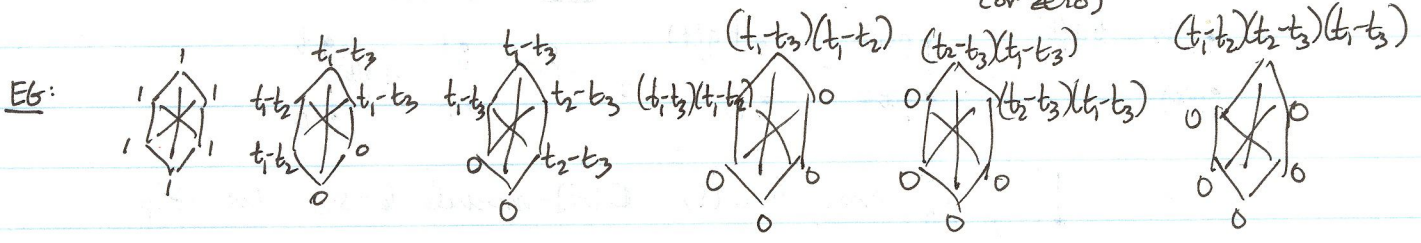 (or zero)
EG:
1 1 1 1 1 1
t₁-t₃ t₁-t₂ t₁-t₃ t₁-t₂ 0 0
t₁-t₃ t₁-t₃ t₂-t₃ 0 t₂-t₃ 0
(t₁-t₃)(t₁-t₂) (t₁-t₃)(t₁-t₂) 0 0 0 0
(t₂-t₃)(t₁-t₃) 0 (t₂-t₃)(t₁-t₃) 0 0 0
(t₁-t₂)(t₂-t₃)(t₁-t₃) 0 0 0 0 0